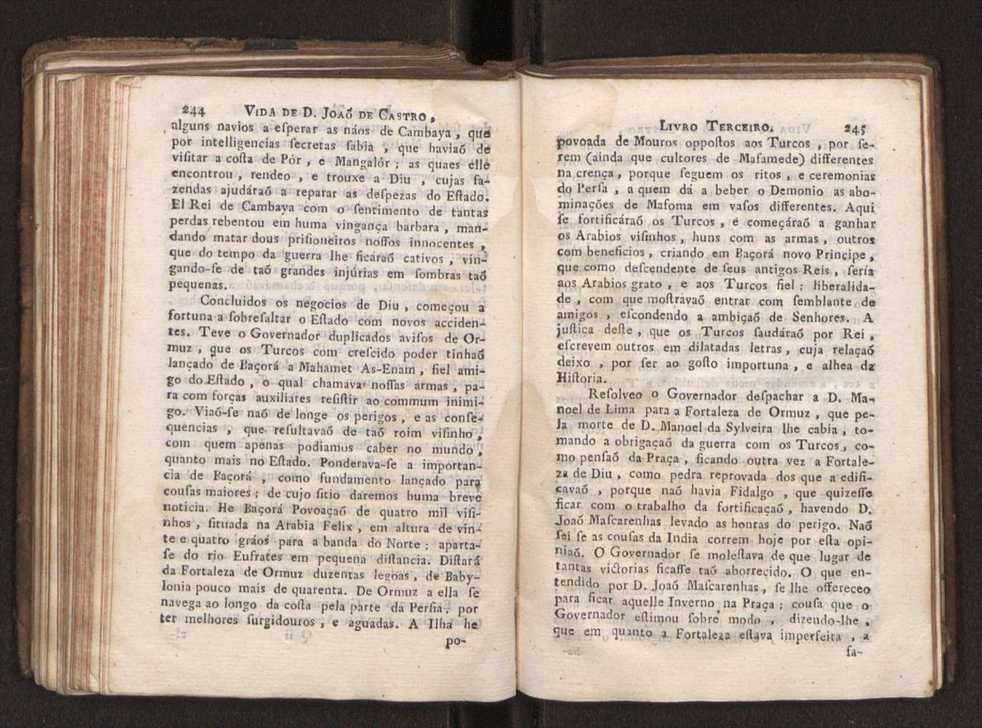 244 VIDA DE D. JOAÕ DE CASTRO,
alguns navios a eſperar as náos de Cambaya, que
por intelligencias ſecretas ſabia, que haviaõ de
viſitar a coſta de Pór, e Mangalór; as quaes elle
encontrou, rendeo, e trouxe a Diu, cujas fa-
zendas ajudáraõ a reparar as deſpezas do Eſtado.
El Rei de Cambaya com o ſentimento de tantas
perdas rebentou em huma vingança barbara, man-
dando matar dous priſioneiros noſſos innocentes,
que do tempo da guerra lhe ficáraõ cativos, vin-
gando-ſe de taõ grandes injúrias em ſombras taõ
pequenas.
Concluidos os negocios de Diu, começou a
fortuna a ſobreſaltar o Eſtado com novos acciden-
tes. Teve o Governador duplicados aviſos de Or-
muz, que os Turcos com creſcido poder tinhaõ
lançado de Baçorá a Mahamet As-Enam, fiel ami-
go do Eſtado, o qual chamava noſſas armas, pa-
ra com forças auxiliares reſiſtir ao commum inimi-
go. Viaõ-ſe naõ de longe os perigos, e as conſe-
quencias, que reſultavaõ de taõ roim viſinho,
com quem apenas podiamos caber no mundo,
quanto mais no Eſtado. Ponderava-ſe a importan-
cia de Baçorá, como fundamento lançado para
couſas maiores; de cujo ſitio daremos huma breve
noticia. He Baçorá Povoaçaõ de quatro mil viſi-
nhos, ſituada na Arabia Felix, em altura de vin-
te e quatro gráos para a banda do Norte; aparta-
ſe do rio Eufrates em pequena diſtancia. Diſtará
da Fortaleza de Ormuz duzentas legoas, de Baby-
lonia pouco mais de quarenta. De Ormuz a ella ſe
navega ao longo da coſta pela parte da Perſia, por
ter melhores ſurgidouros, e aguadas. A Ilha he
po-
LIVRO TERCEIRO. 245
povoada de Mouros oppoſtos aos Turcos, por ſe-
rem (ainda que cultores de Mafamede) differentes
na crença, porque ſeguem os ritos, e ceremonias
do Perſa, a quem dá a beber o Demonio as abo-
minações de Mafoma em vaſos differentes. Aqui
ſe fortificáraõ os Turcos, e começáraõ a ganhar
os Arabios viſinhos, huns com as armas, outros
com beneficios, criando em Baçorá novo Principe,
que como deſcendente de ſeus antigos Reis, ſería
aos Arabios grato, e aos Turcos fiel; liberalida-
de, com que moſtravaõ entrar com ſemblante de
amigos, eſcondendo a ambiçaõ de Senhores. A
juſtiça deſte, que os Turcos ſaudáraõ por Rei,
eſcrevem outros em dilatadas letras, cuja relaçaõ
deixo, por ſer ao goſto importuna, e alhea da
Hiſtoria.
Reſolveo o Governador deſpachar a D. Ma-
noel de Lima para a Fortaleza de Ormuz, que pe-
la morte de D. Manoel da Sylveira lhe cabia, to-
mando a obrigaçaõ da guerra com os Turcos, co-
mo penſaõ da Praça, ficando outra vez a Fortale-
za de Diu, como pedra reprovada dos que a edifi-
cavaõ, porque naõ havia Fidalgo, que quizeſſe
ficar com o trabalho da fortificaçaõ, havendo D.
Joaõ Maſcarenhas levado as honras do perigo. Naõ
ſei ſe as couſas da India correm hoje por eſta opi-
niaõ. O Governador ſe moleſtava de que lugar de
tantas victorias ficaſſe taõ aborrecido. O que en-
tendido por D. Joaõ Maſcarenhas, ſe lhe offereceo
para ficar aquelle Inverno na Praça; couſa que o
Governador eſtimou ſobre modo, dizendo-lhe,
que em quanto a Fortaleza eſtava imperfeita, a
ſa-